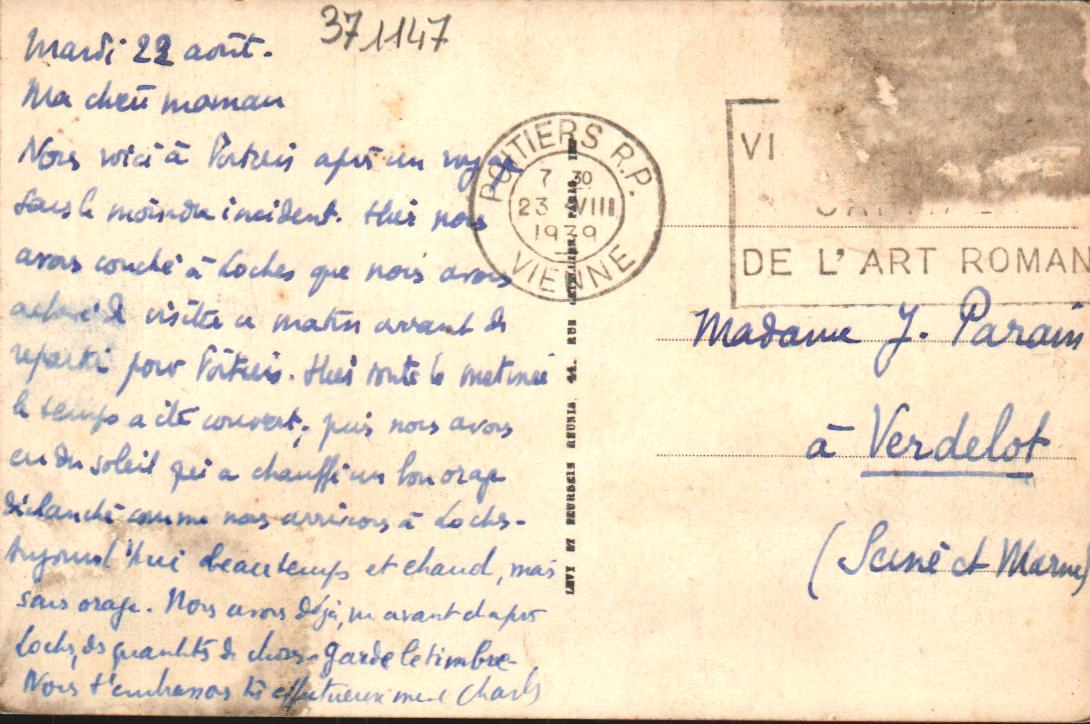 37 1147
Mardi 22 août.
Ma chère maman
Nous voici à Poitiers après un voyage
sans le moindre incident. Hier nous
avons couché à Loches que nous avons
achevé de visiter ce matin avant de
repartir pour Poitiers. Hier toute la matinée
le temps a été couvert, puis nous avons
eu du soleil qui a chauffé un bon orage
déclanché comme nous arrivions à Loches-
Aujourd'hui beau temps et chaud, mais
sans orage. Nous avons déjà, vu avant et après
Loches, des quantités de choses- garde le timbre-
Nous t'embrassons très affectueusement Charles
POITIERS R.P.
7 30
23 VIII
1939
VIENNE
VI
DE L'ART ROMAN
LEVY ET NEURDEIN REUNIS, 44, RUE PARIS
Madame J. Parain
à Verdelot
(Seine et Marne)